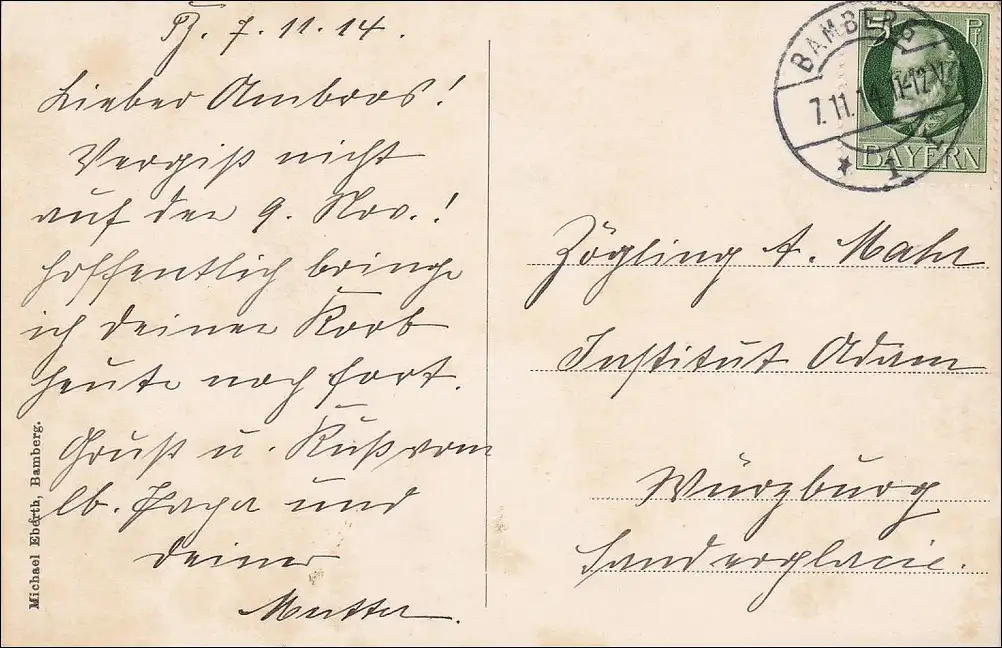 Bbg. 7.11.14.
Lieber Ambros!
Vergiß nicht
auf den 9. Nov.!
Hoffentlich bringe
ich deinen Korb
heute noch fort.
Gruß u. Kuß vom
lb. Papa und
deiner
Mutter.
Michael Eberth, Bamberg.
BAMBERG
7.11.14 11-12 V.
* 1
5 Pf
BAYERN
Zögling A. Mahr
Institut Adam
Würzburg
Sanderglacis.